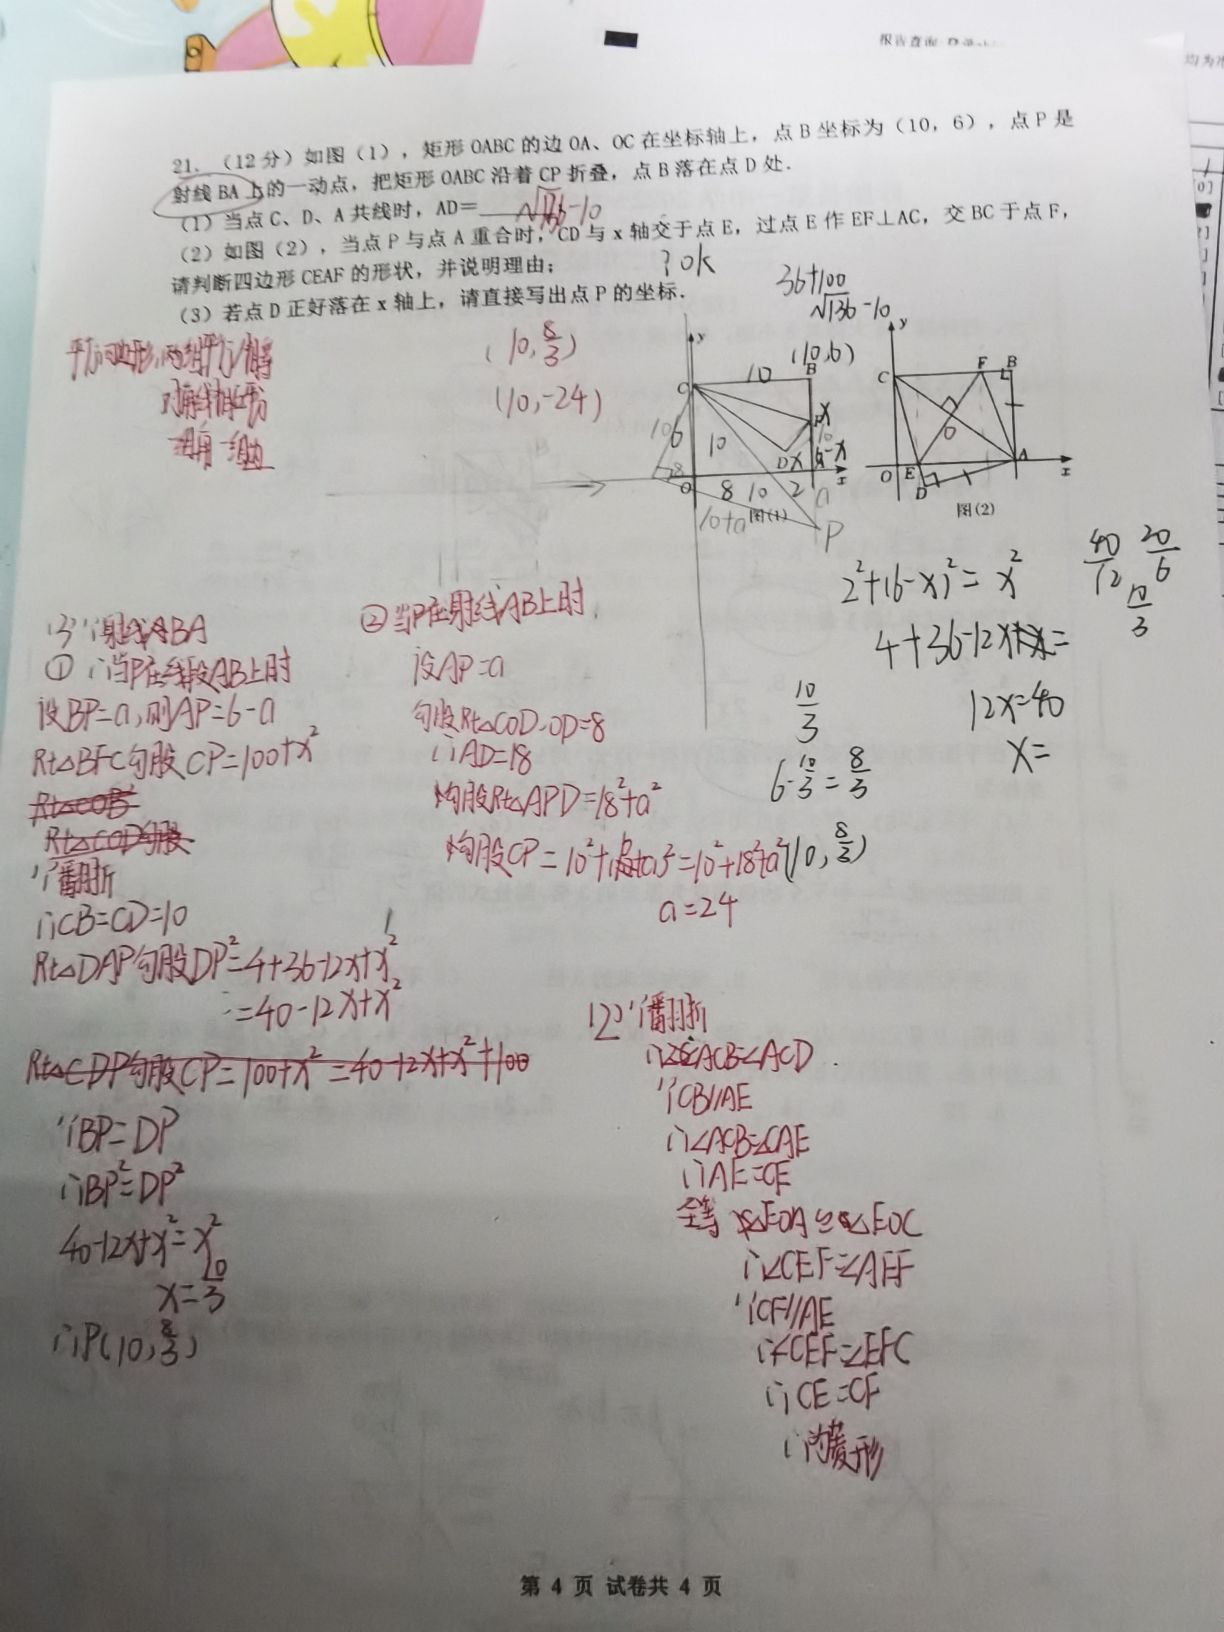 报告查询:
均为
21.（12分）如图（1），矩形OABC的边OA、OC在坐标轴上，点B坐标为（10，6），点P是
射线BA上的一动点，把矩形OABC沿着CP折叠，点B落在点D处．
（1）当点C、D、A共线时，AD= √136-10
（2）如图（2），当点P与点A重合时，CD与x轴交于点E，过点E作EF⊥AC，交BC于点F，
请判断四边形CEAF的形状，并说明理由；
? ok
（3）若点D正好落在x轴上，请直接写出点P的坐标．
36+100
√136-10
(10, 8/3)
(10,-24)
对角线
y
(10,6)
C
10
B
P
x
10
6
10
D
x
6-x
x
8
O
8
10
2
a
10+a
图(1)
P
y
C
F
B
O
O
E
A
x
D
图(2)
2²+(6-x)²=x²
4+36-12x+x²=
12x=40
x=
40/12
20/6
10/3
10/3
6-10/3=8/3
(10, 8/3)
(3)∵射线BA
① ∵当P在线段AB上时
设BP=a,则AP=6-a
Rt△BFC勾股CP=100+x²
Rt△COD勾股
∵翻折
∴CB=CD=10
Rt△DAP勾股DP²=4+36-12x+x²
=40-12x+x²
Rt△CDP勾股CP=100+x²=40-12x+x²+100
∵BP=DP
∴BP²=DP²
40-12x+x²=x²
x=10/3
∴P(10, 8/3)
②当P在射线AB上时
设AP=a
勾股Rt△COD,OD=8
∴AD=18
勾股Rt△APD=18²+a²
勾股CP=10²+(6+a)²=10²+18²+a²
a=24
(2)∵翻折
∴∠ACB=∠ACD
∵CB//AE
∴∠ACB=∠CAE
∴AE=CE
全等 △EOA≌△EOC
∴∠CEF=∠AEF
∵CF//AE
∴∠CEF=∠EFC
∴CE=CF
∴为菱形
第 4 页 试卷共 4 页